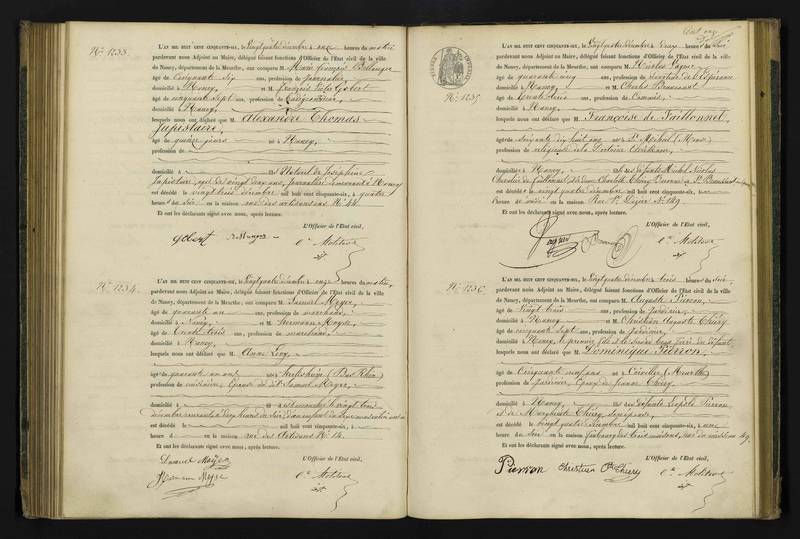 N° 1233.
L'AN MIL HUIT CENT CINQUANTE-SIX, le vingt quatre décembre à onze heures du matin
pardevant nous Adjoint au Maire, délégué faisant fonctions d'Officier de l'Etat civil de la ville
de Nancy, département de la Meurthe, ont comparu M. François Bellanger
âgé de Cinquante Six ans, profession de Journalier,
domicilié à Nancy, et M. François Victor Gobert
âgé de cinquante sept ans, profession de
domicilié à Nancy,
lesquels nous ont déclaré que M. Alexandre Thomas
Jupistaire,
âgé de quinze jours né à Nancy,
profession de
domicilié à fils Naturel de Josephine
Jupistaire, âgée de vingt deux ans, journalière demeurant à Nancy
est décédé le vingt trois décembre mil huit cent cinquante-six, à quatre
heures du soir en la maison rue des artisans N° 44.
Et ont les déclarants signé avec nous, après lecture.
L'Officier de l'Etat civil,
Gobert Bellanger Molitor
N° 1234.
L'AN MIL HUIT CENT CINQUANTE-SIX, le vingt quatre décembre à onze heures du matin,
pardevant nous Adjoint au Maire, délégué faisant fonctions d'Officier de l'Etat civil de la ville
de Nancy, département de la Meurthe, ont comparu M. Samuel Meyer,
âgé de quarante un ans, profession de marchand,
domicilié à Nancy, et M. Hermann Moyse,
âgé de trente trois ans, profession de marchand,
domicilié à Nancy,
lesquels nous ont déclaré que M. Anne Lévy,
âgé de quarante un ans née à (Bas Rhin)
profession de Epouse du dit Samuel Meyer,
domicilié à
décembre
est décédé le mil huit cent cinquante-six, à
heure d en la maison rue des Artisans N° 14.
Et ont les déclarants signé avec nous, après lecture.
L'Officier de l'Etat civil,
Samuel Meyer
Hermann Moyse Molitor
N° 1235
L'AN MIL HUIT CENT CINQUANTE-SIX, le vingt quatre décembre à deux heures du soir
pardevant nous Adjoint au Maire, délégué faisant fonctions d'Officier de l'Etat civil de la ville
de Nancy, département de la Meurthe, ont comparu M. Nicolas Vagner,
âgé de quarante cinq ans, profession de de l'Espérance
domicilié à Nancy et M. Charles
âgé de trente trois ans, profession de Commis,
domicilié à Nancy,
lesquels nous ont déclaré que M. Françoise de Faillonnet,
âgée de soixante dix huit ans née à St. Mihiel (Meuse)
profession de religieuse de la Doctrine Chrétienne,
domicilié à Nancy, fille de défunts Michel Nicolas
Chevalier de Faillonnet, et de Dame Charlotte Thérèse
est décédé le vingt quatre décembre mil huit cent cinquante-six, à une
heure en la maison Rue St. Dizier N° 149.
Et ont les déclarants signé avec nous, après lecture.
L'Officier de l'Etat civil,
Vagner Molitor
N° 1236.
L'AN MIL HUIT CENT CINQUANTE-SIX, le vingt quatre décembre à trois heures du soir,
pardevant nous Adjoint au Maire, délégué faisant fonctions d'Officier de l'Etat civil de la ville
de Nancy, département de la Meurthe, ont comparu M. Auguste Pierron,
âgé de vingt trois ans, profession de jardinier,
domicilié à Nancy et M. Christian Auguste Thiéry
âgé de cinquante sept ans, profession de jardinier,
domicilié à Nancy, le premier fils et le second beau frère du défunt,
lesquels nous ont déclaré que M. Dominique Pierron,
âgé de Cinquante neuf ans né à (Meurthe)
profession de jardinier, Epoux de Jeanne Thiéry,
domicilié à Nancy, fils de défunts Léopold Pierron
et de Marguerite Thiéry
est décédé le vingt quatre décembre mil huit cent cinquante-six, à une
heure du soir en la maison faubourg des trois maisons, rue 49.
Et ont les déclarants signé avec nous, après lecture.
L'Officier de l'Etat civil,
Pierron Christian Thiery Molitor